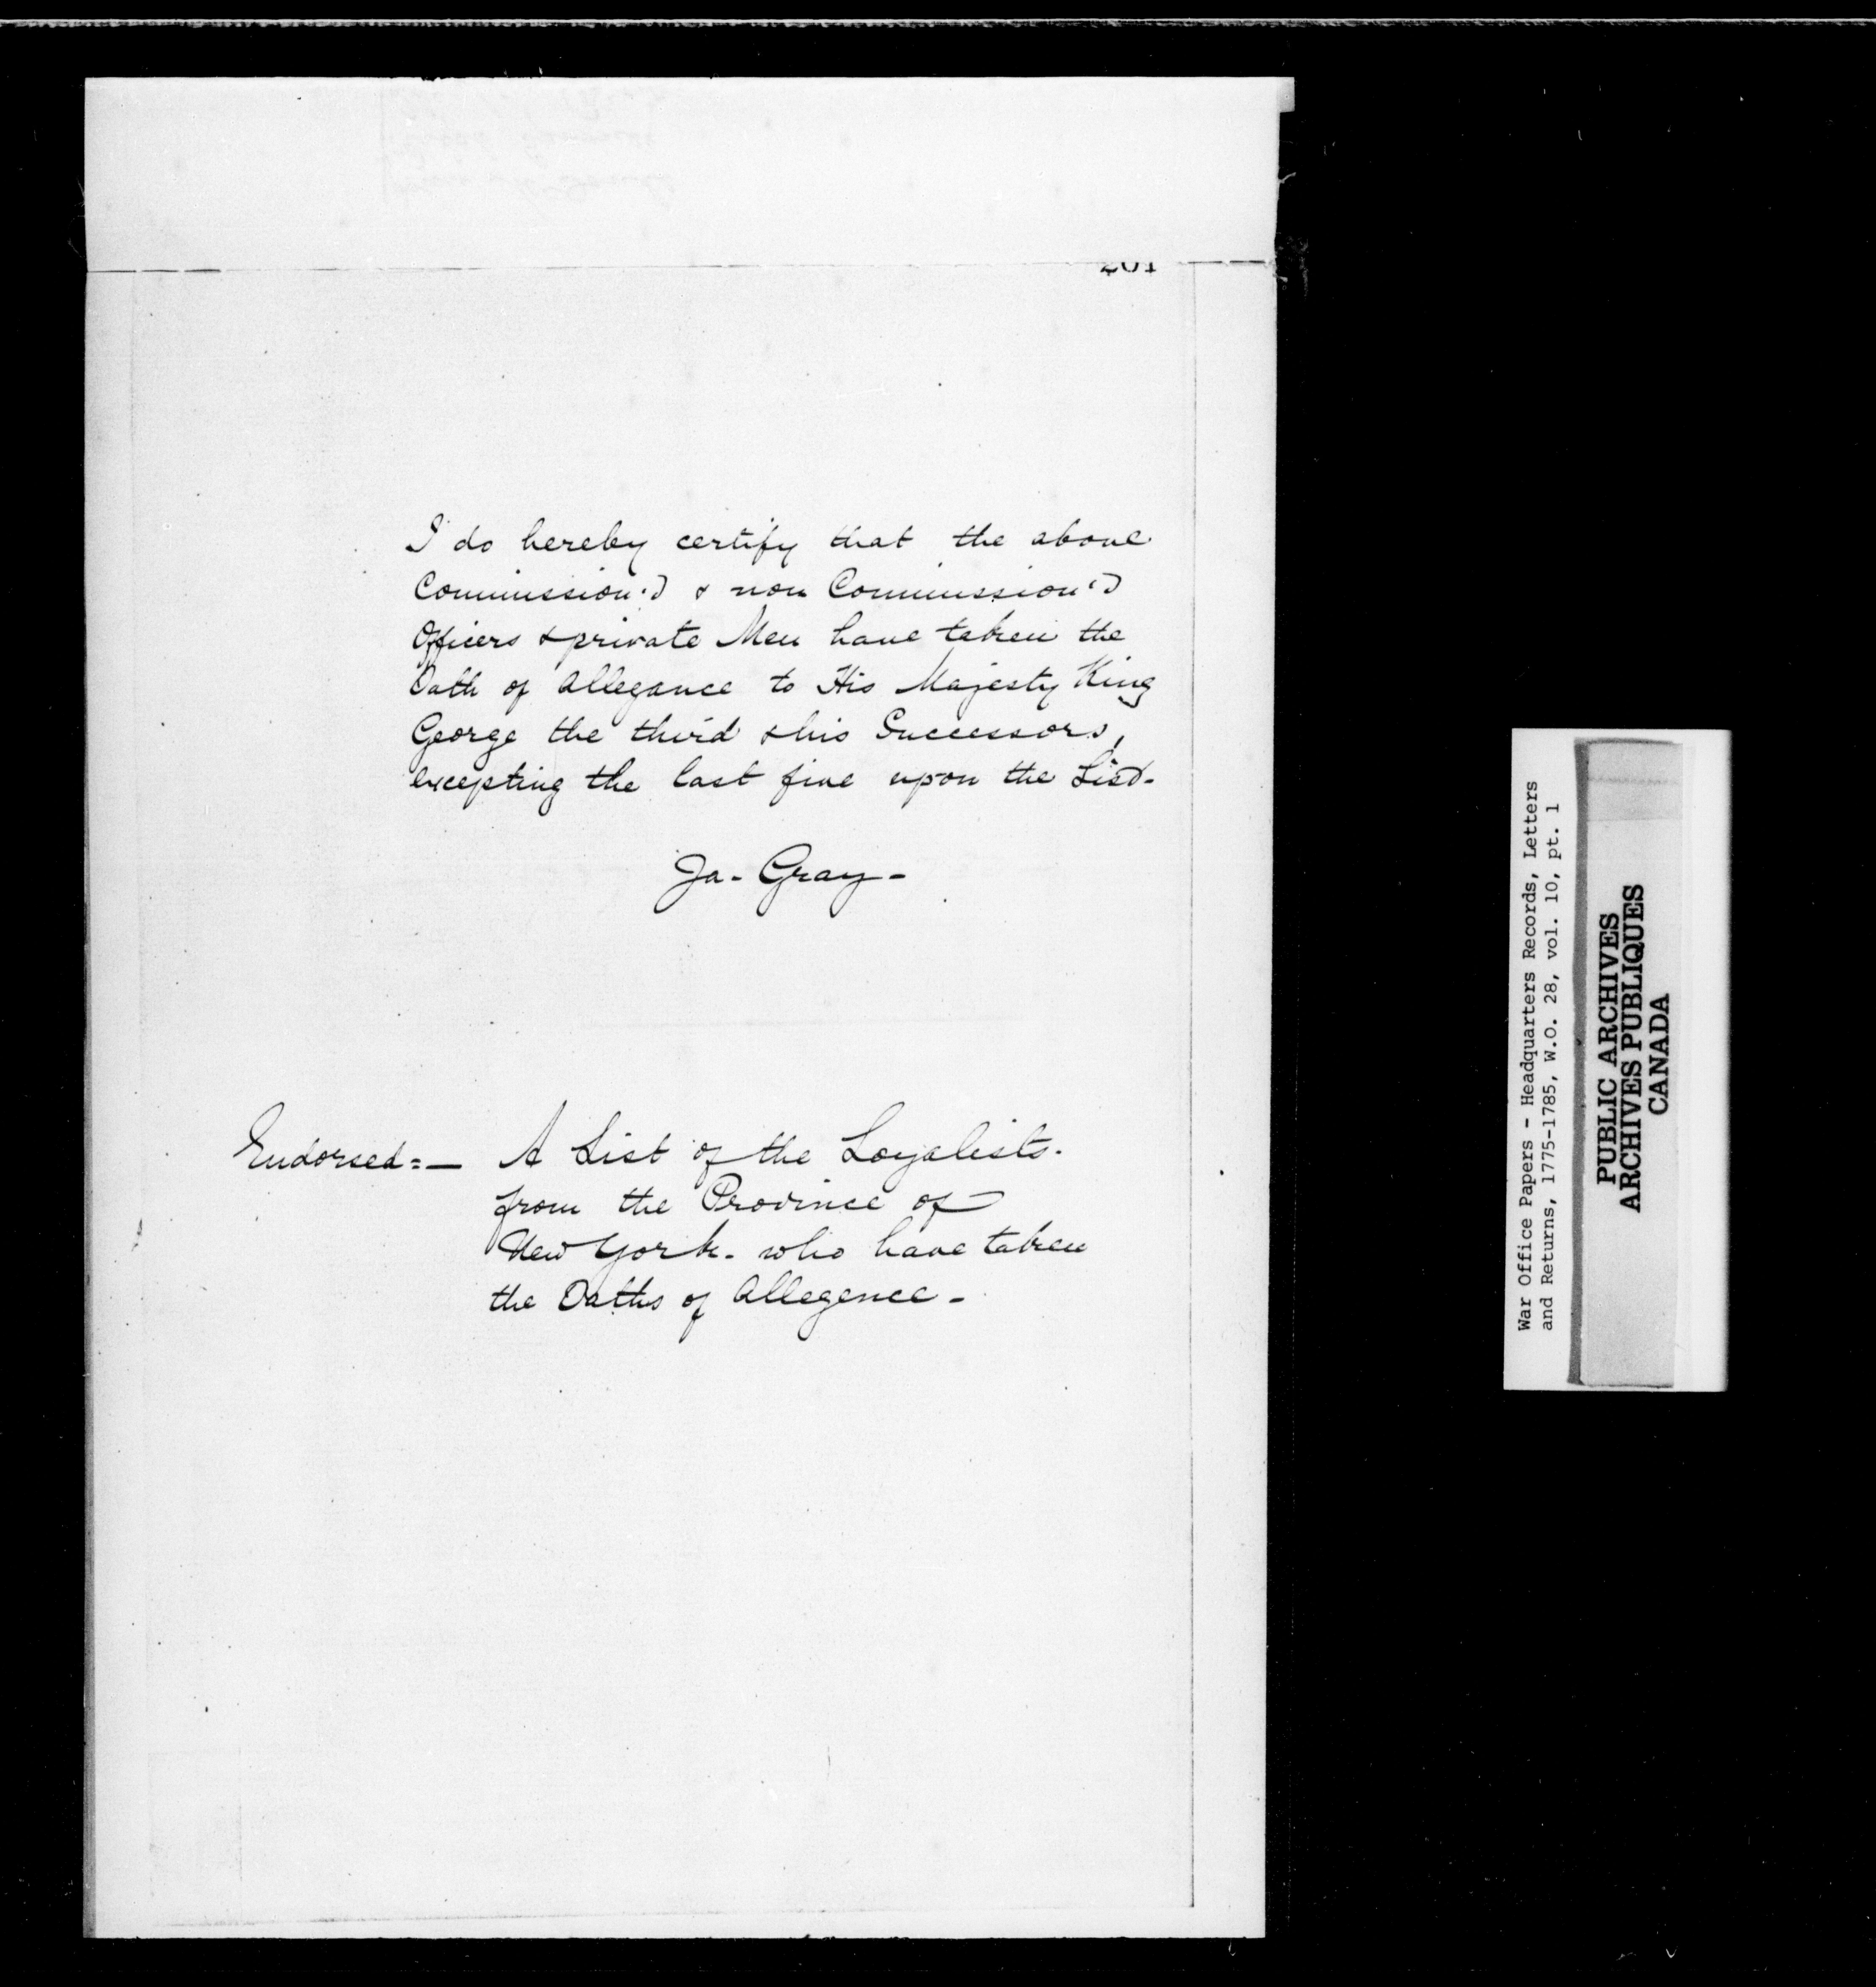 201
I do hereby certify that the above
Commission'd & non Commission'd
Officers & private Men have taken the
Oath of Allegance to His Majesty King
George the third & his Successors,
excepting the last five upon the List-
Ja- Gray-
Endorsed:- A List of the Loyalists.
from the Province of
New York. who have taken
the Oaths of Allegence-
War Office Papers - Headquarters Records, Letters
and Returns, 1775-1785, W.O. 28, vol. 10, pt. 1
PUBLIC ARCHIVES
ARCHIVES PUBLIQUES
CANADA